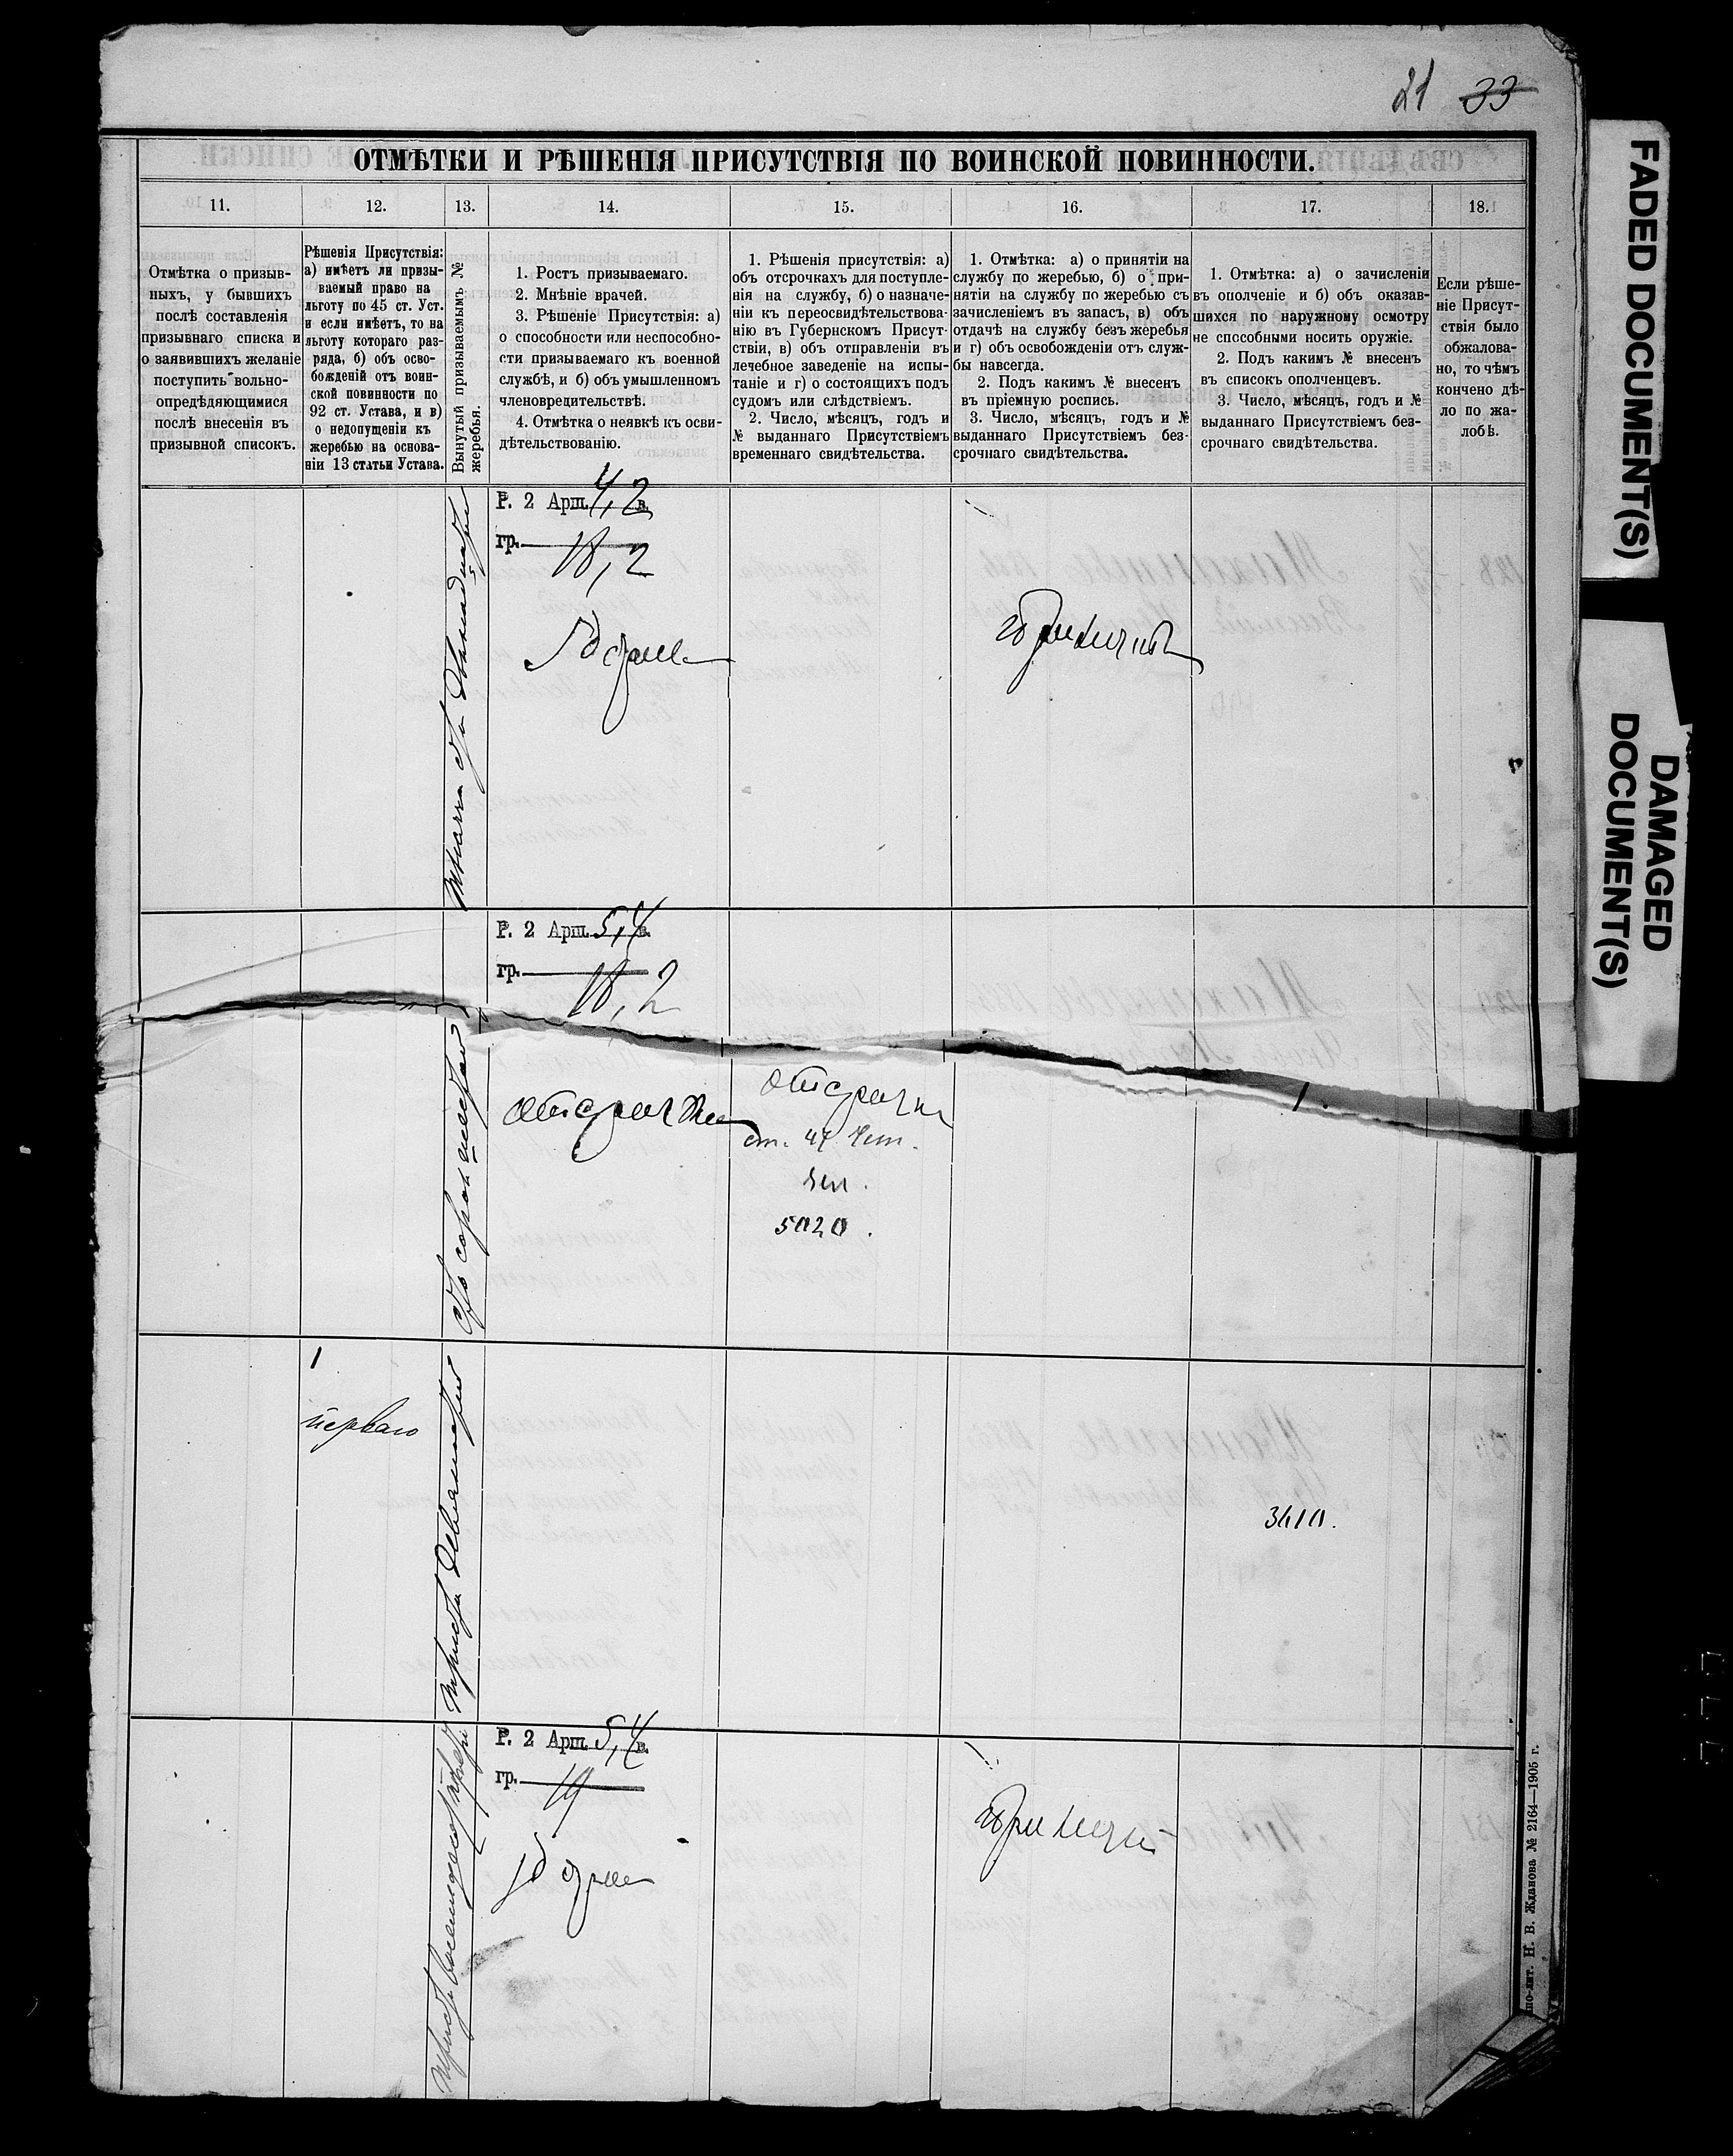 21 33
ОТМѢТКИ И РѢШЕНІЯ ПРИСУТСТВІЯ ПО ВОИНСКОЙ ПОВИННОСТИ.
11. 12. 13. 14. 15. 16. 17. 18.
Отмѣтка о призыв-
ныхъ, у бывшихъ
послѣ составленія
призывнаго списка и
о заявившихъ желаніе
поступить вольно-
опредѣдяющимися
послѣ внесенія въ
призывной списокъ.
Рѣшенія Присутствія:
а) имѣетъ ли призы-
ваемый право на
льготу по 45 ст. Уст.
и если имѣетъ, то на
льготу котораго раз-
ряда, б) объ осво-
божденій отъ воин-
ской повинности по
92 ст. Устава, и в)
о недопущеніи къ
жеребью на основа-
ніи 13 статьи Устава.
Вынутый призываемымъ №
жеребья.
1. Ростъ призываемаго.
2. Мнѣніе врачей.
3. Рѣшеніе Присутствія: а)
о способности или неспособно-
сти призываемаго къ военной
службѣ, и б) объ умышленномъ
членовредительствѣ.
4. Отмѣтка о неявкѣ къ осви-
дѣтельствованію.
1. Рѣшенія присутствія: а)
объ отсрочкахъ для поступле-
нія на службу, б) о назначе-
ніи къ переосвидѣтельствова-
нію въ Губернскомъ Присут-
ствіи, в) объ отправленіи въ
лечебное заведеніе на испы-
таніе и г) о состоящихъ подъ
судомъ или слѣдствіемъ.
2. Число, мѣсяцъ, годъ и
№ выданнаго Присутствіемъ
временнаго свидѣтельства.
1. Отмѣтка: а) о принятіи на
службу по жеребью, б) о при-
нятіи на службу по жеребью съ
зачисленіемъ въ запасъ, в) объ
отдачѣ на службу безъ жеребья
и г) объ освобожденіи отъ служ-
бы навсегда.
2. Подъ какимъ № внесенъ
въ пріемную роспись.
3. Число, мѣсяцъ, годъ и №
выданнаго Присутствіемъ без-
срочнаго свидѣтельства.
1. Отмѣтка: а) о зачисленіи
въ ополченіе и б) объ оказав-
шихся по наружному осмотру
не способными носить оружіе.
2. Подъ какимъ № внесенъ
въ списокъ ополченцевъ.
3. Число, мѣсяцъ, годъ и №
выданнаго Присутствіемъ без-
срочнаго свидѣтельства.
Если рѣше-
ніе Присут-
ствія было
обжалова-
но, то чѣмъ
кончено дѣ-
ло по жа-
лобѣ.
Р. 2 Арш. 4,2 в.
гр. 18,2
Годенъ
Принятъ
Р. 2 Арш. 5,4 в.
гр. 18,2
сто сорок
отсрочка
отсрочка
ст. 47 Уст.
5020.
1
перваго
Триста девяносто
3410.
Р. 2 Арш. 5,4 в.
гр. 19
Годенъ
Принятъ
Триста восемьдесят
по-лит. Н. В. Жданова № 2164—1905 г.
FADED DOCUMENT(S)
DAMAGED
DOCUMENT(S)